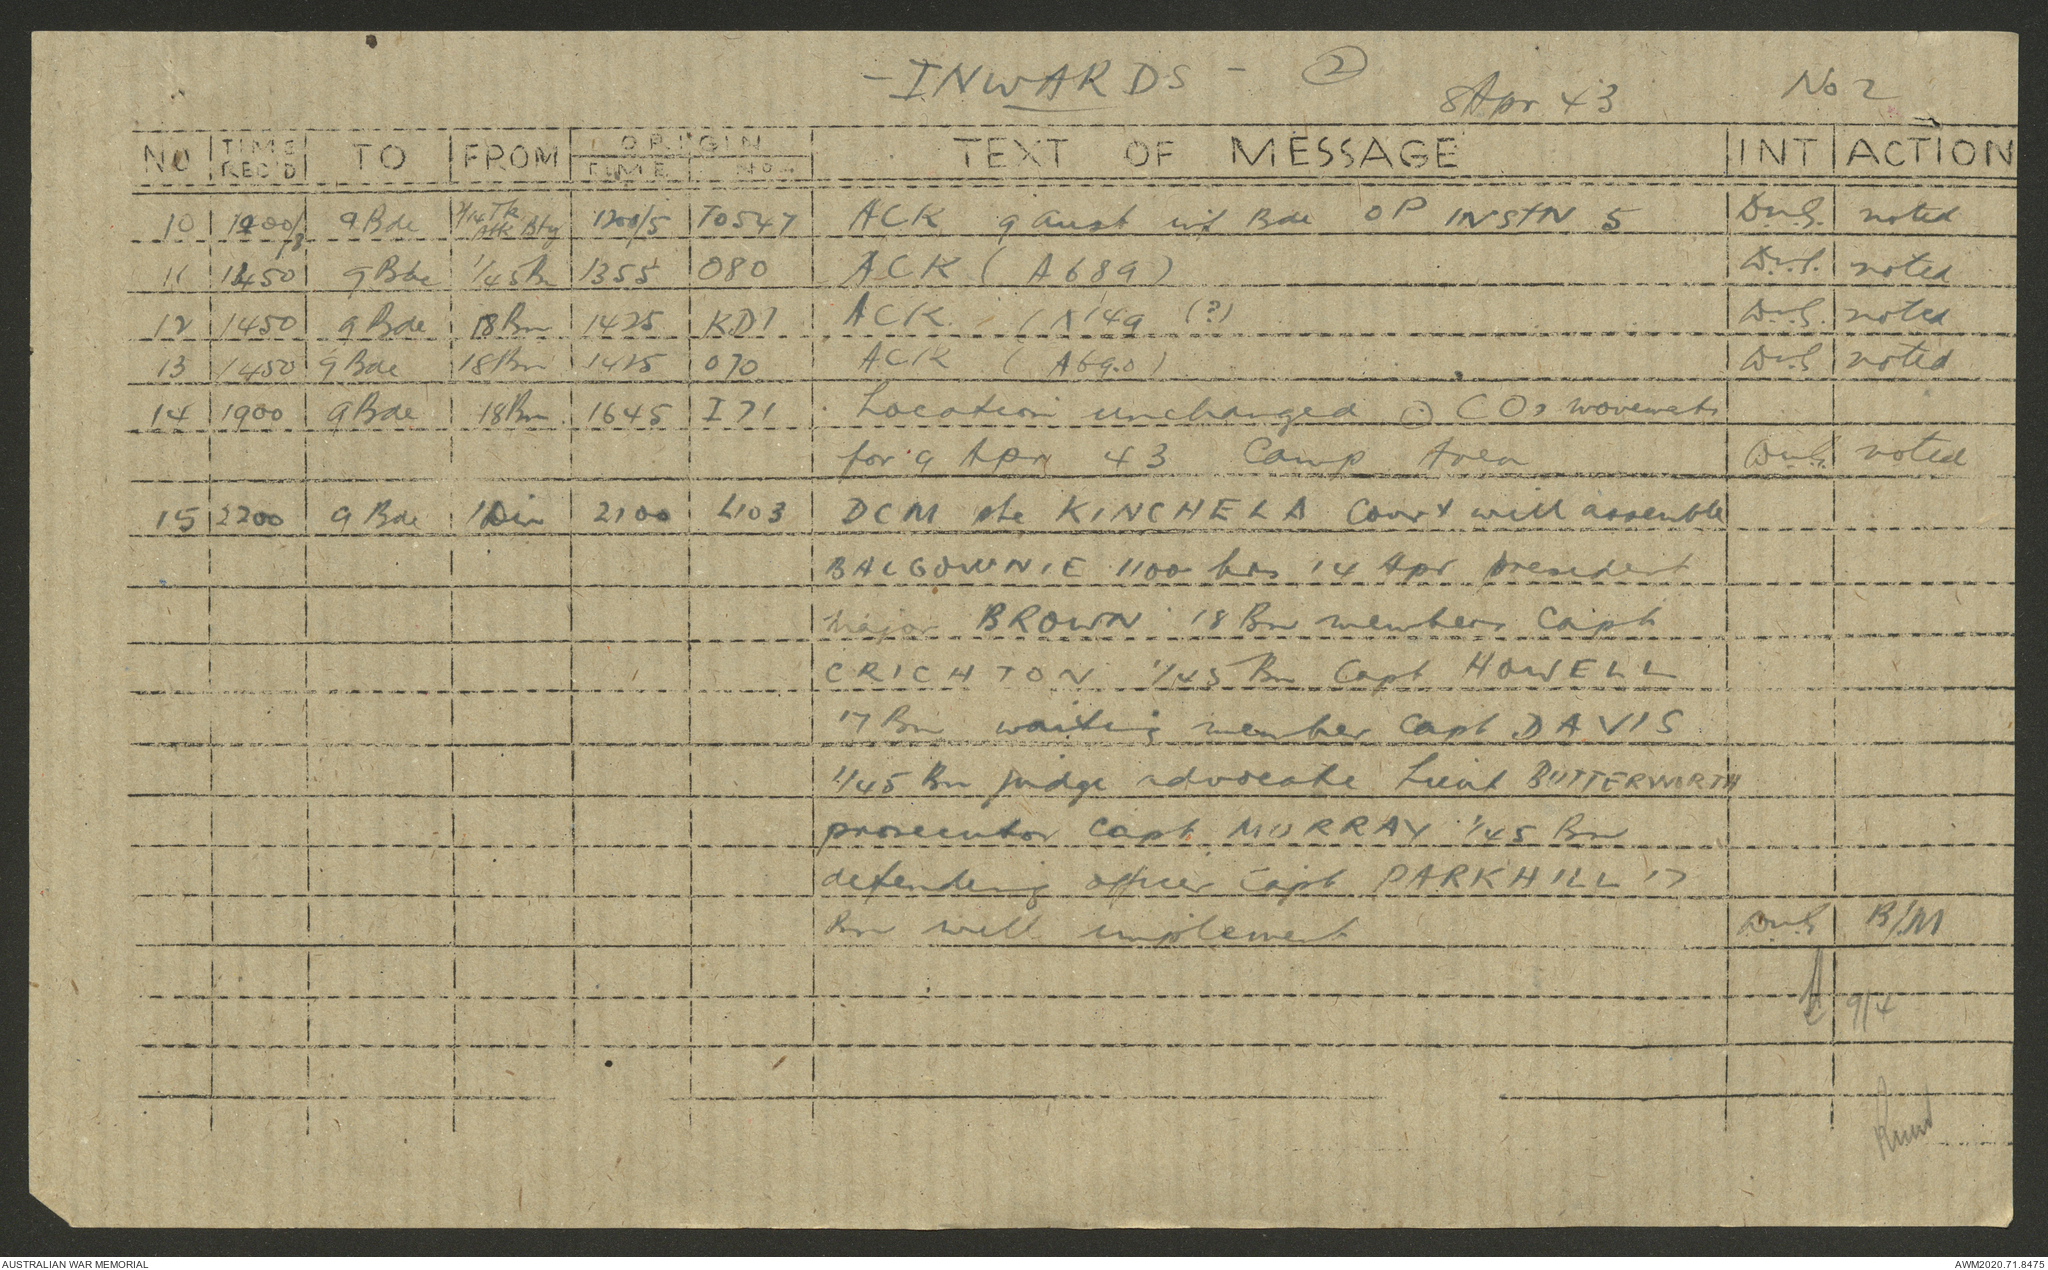 - INWARDS - 2
8 Apr 43 No 2
NO TIME REC'D TO FROM ORIGIN TIME NO. TEXT OF MESSAGE INT ACTION
10 9 Bde 1200/5 TO547 ACK 9 Aust inf Bde OP INSTN 5 DmG. noted
11 1450 9 Bde 1/45 Bn 1355 080 ACK (A689) noted
12 1450 9 Bde 18 Bn 1425 KD1 ACK (A149 (?) DmG. noted
13 1450 9 Bde 18 Bn 1425 070 ACK (A690) DmG noted
14 1900 9 Bde 18 Bn 1645 I71 Location unchanged COs movements
for 9 Apr 43 Camp Area DmG. noted
15 2200 9 Bde 1 Div 2100 L103 DCM pte KINCHELA Court will assemble
BALGOWNIE 1100 hrs 14 Apr president
major BROWN 18 Bn members Capt
CRICHTON 1/45 Bn Capt HOWELL
17 Bn waiting member Capt DAVIS
1/45 Bn judge advocate Lieut BUTTERWORTH
prosecutor Capt MURRAY 1/45 Bn
defending officer Capt PARKHILL 17
Bn will implement DmG B/M
9/4
AUSTRALIAN WAR MEMORIAL AWM2020.71.8475